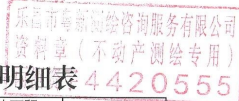 乐昌市粤新测绘咨询服务有限公司
资料章(不动产测绘专用)
明细表 4420555